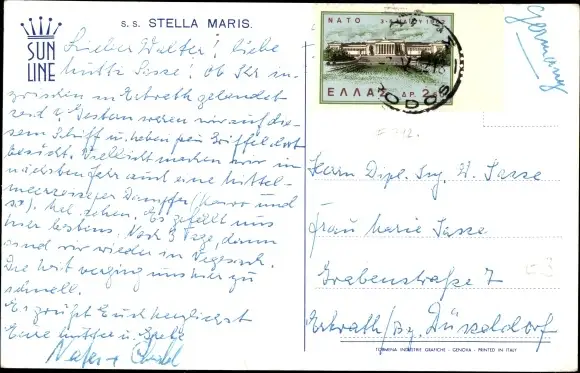 SUN
LINE
S.S. STELLA MARIS.
Lieber Walter! liebe
Mutti Sasse! Ob Ihr in-
zwischen in Erkrath gelandet
seid? Gestern waren wir auf die-
sem Schiff u. haben
besucht. Vielleicht machen wir im
nächsten Jahr auch eine Mittel-
meerreise per Dampfer (
mal sehen. Es gefällt uns
hier bestens. Noch 3 Tage, dann
sind wir wieder in Vegesack.
Die Zeit verging uns hier zu
schnell.
Es grüßt Euch herzlichst
Eure Mutter u.
Vater +
NATO
ΕΛΛΑΣ ΔΡ. 2
Germany
Herrn Dipl. Ing. W. Sasse
Frau Marie Sasse
Grabenstraße 7
Erkrath/Bz. Düsseldorf
TORMENA INDUSTRIE GRAFICHE - GENOVA - PRINTED IN ITALY